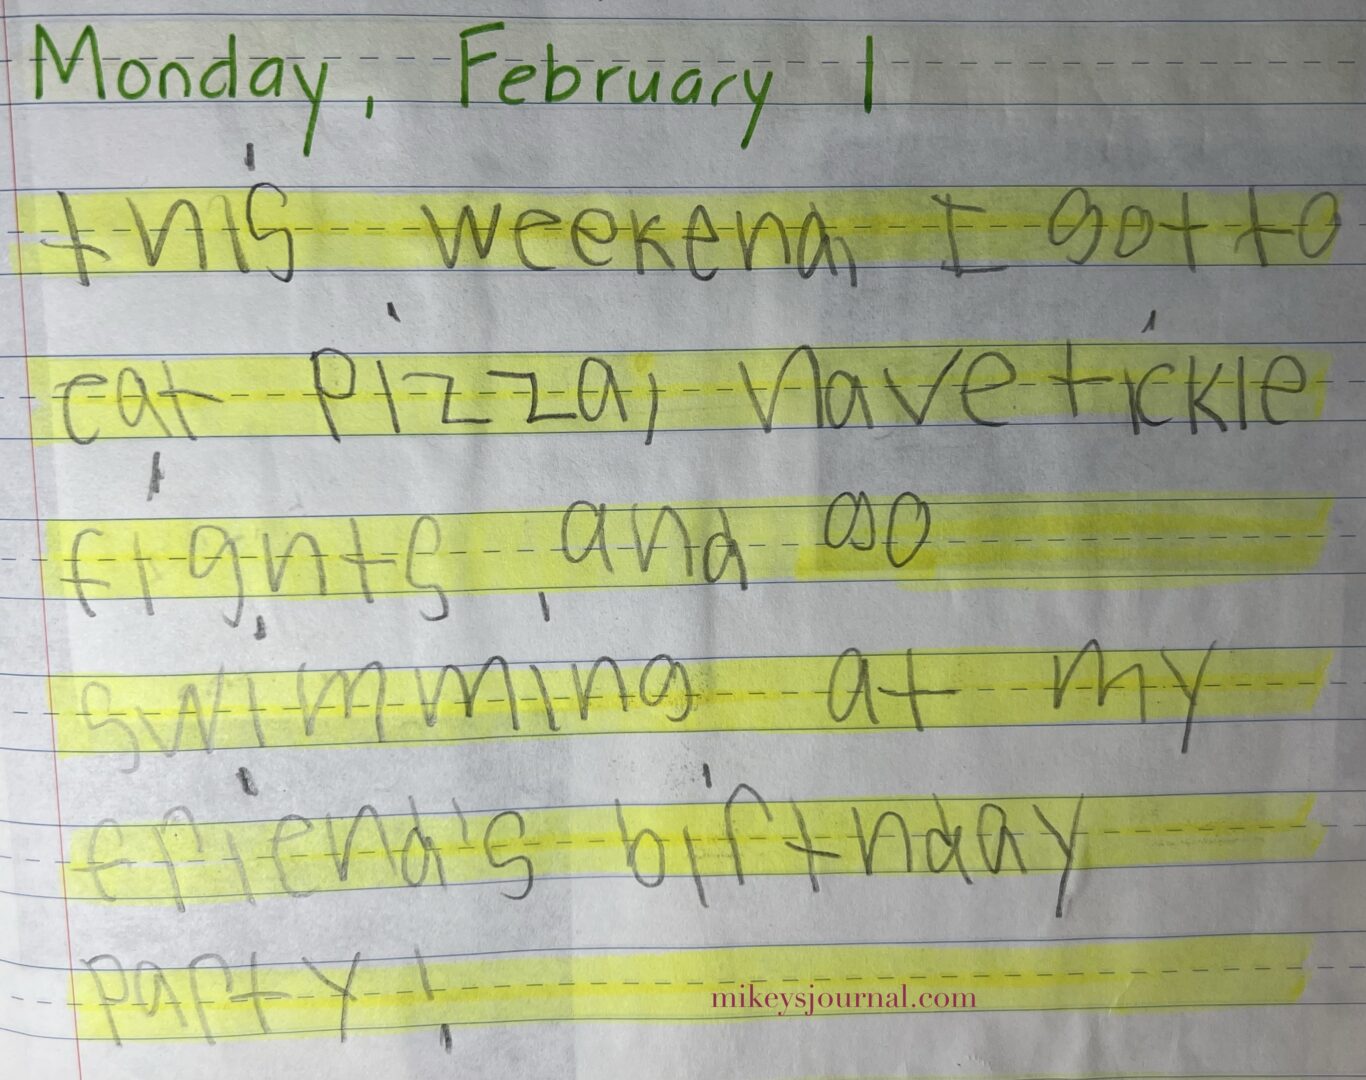 Monday, February 1
this weekend, I got to
eat pizza, have tickle
fights, and go
swimming at my
friend's birthday
party!
mikeysjournal.com